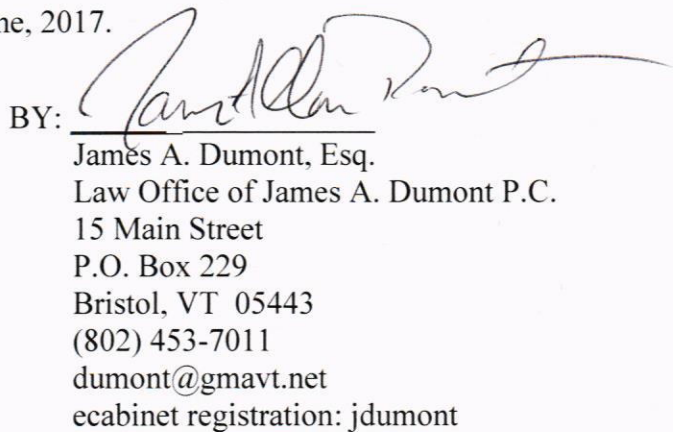 ne, 2017.
BY:
James A. Dumont, Esq.
Law Office of James A. Dumont P.C.
15 Main Street
P.O. Box 229
Bristol, VT 05443
(802) 453-7011
dumont@gmavt.net
ecabinet registration: jdumont